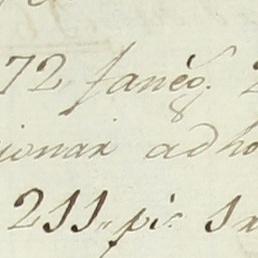 72 faneg.s 2
ionar adho
211,, p.s 1x